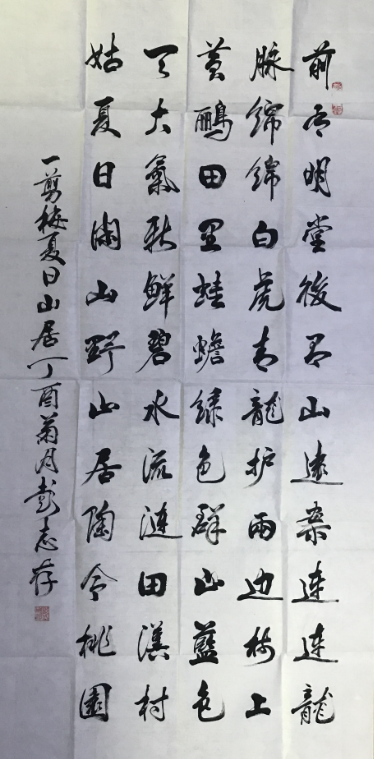 前有明堂後有山遠案連連龍
脉綿綿白虎青龍护兩边樹上
黄鸝田里蛙蟾緑色群山藍色
天大氣新鮮碧水流漣田漢村
姑夏日闲山野山居陶令桃園
一剪梅夏日山居丁酉菊月彭志存